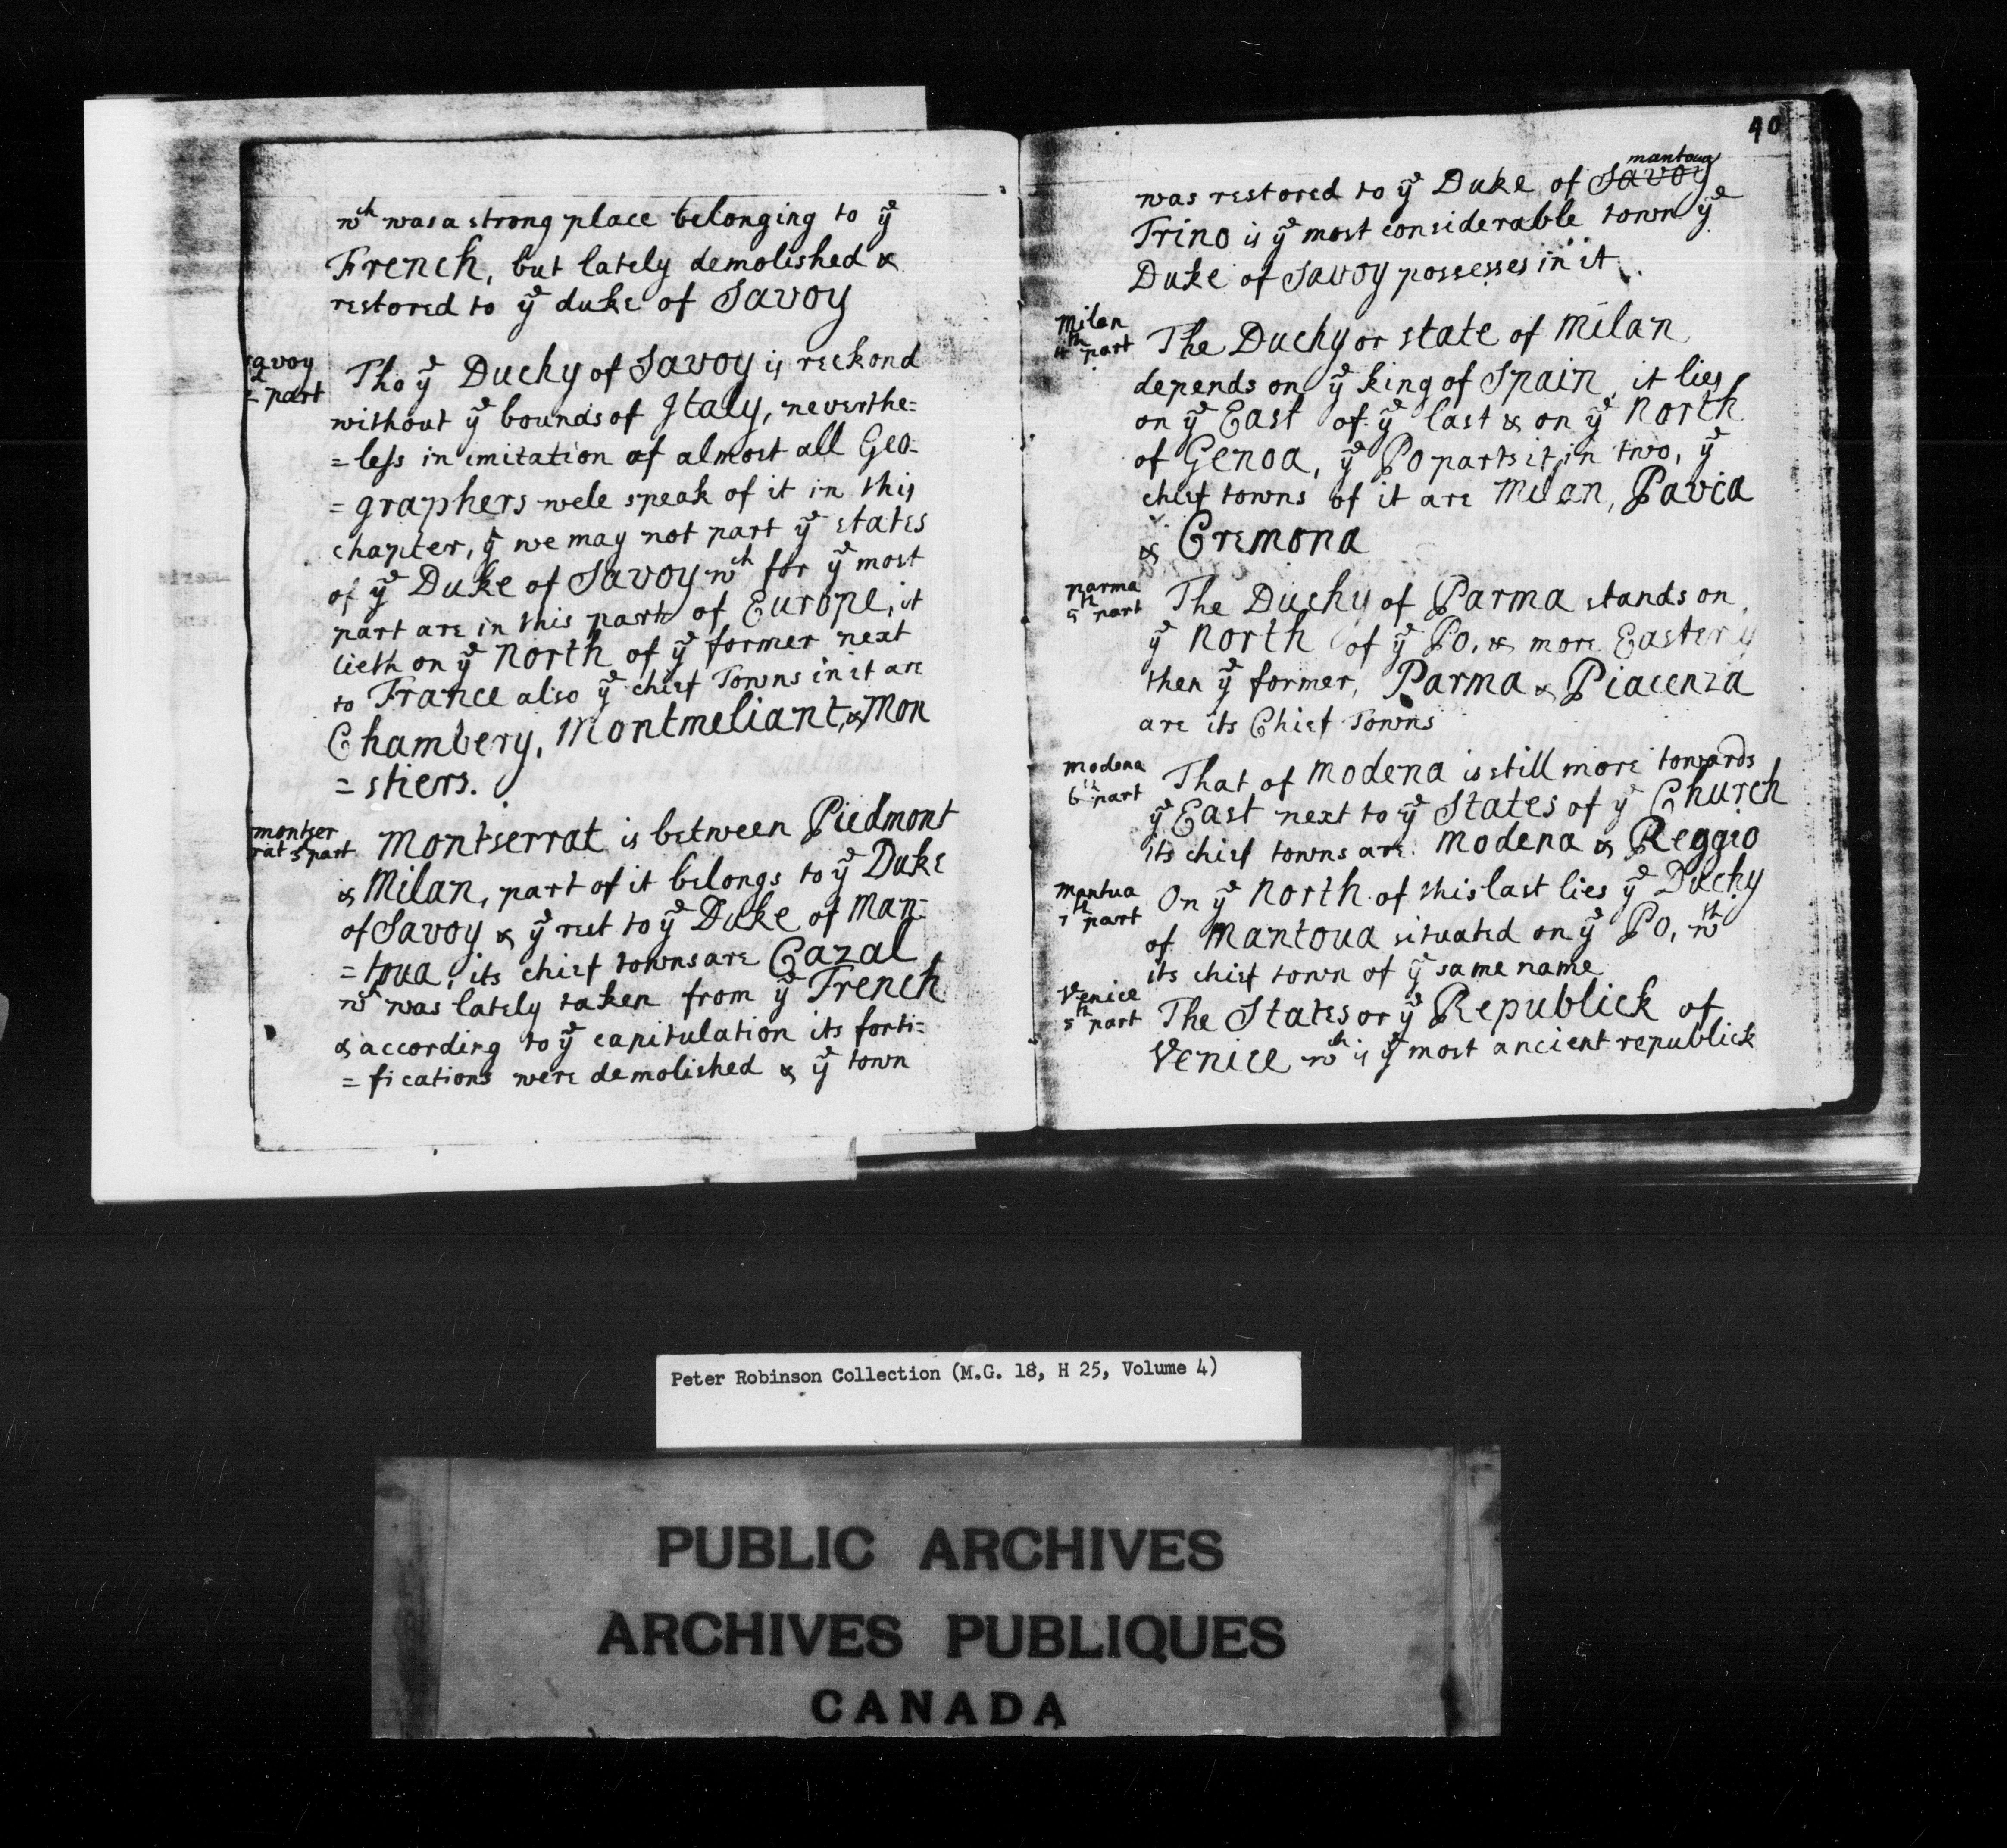 wh was a strong place belonging to ye
French, but lately demolished &
restored to ye duke of Savoy
avoy
part
Tho ye Duchy of Savoy is reckond
without ye bounds of Italy, neverthe=
=less in imitation of almost all Geo-
=graphers wele speak of it in this
chapter, yt we may not part ye states
of ye Duke of Savoy wh for ye most
part are in this part of Europe, it
lieth on ye North of ye former next
to France also ye chief Towns in it are
Chambery, Montmeliant, & Mon
=stiers.
montser
rat 3 part
Montserrat is between Piedmont
& Milan, part of it belongs to ye Duke
of Savoy & ye rest to ye Duke of Man=
=toua, its chief towns are Cazal
wh was lately taken from ye French
& according to ye capitulation its forti=
=fications were demolished & ye town
40
mantoua
was restored to ye Duke of Savoy
Trino is ye most considerable town ye
Duke of Savoy possesses in it.
Milan
4th part
The Duchy or state of Milan
depends on ye king of Spain, it lies
on ye East of ye last & on ye North
of Genoa, ye Po parts it in two, ye
chief towns of it are Milan, Pavia
& Cremona
parma
5th part
The Duchy of Parma stands on
ye North of ye Po, & more Easterly
then ye former, Parma & Piacenza
are its Chief Towns
modena
6th part
That of Modena is still more towards
ye East next to ye States of ye Church
its chief towns are Modena & Reggio
mantua
7th part
On ye North of this last lies ye Duchy
of Mantoua situated on ye Po, wth
its chief town of ye same name
Venice
8th part
The States or ye Republick of
Venice wh is ye most ancient republick
Peter Robinson Collection (M.G. 18, H 25, Volume 4)
PUBLIC ARCHIVES
ARCHIVES PUBLIQUES
CANADA